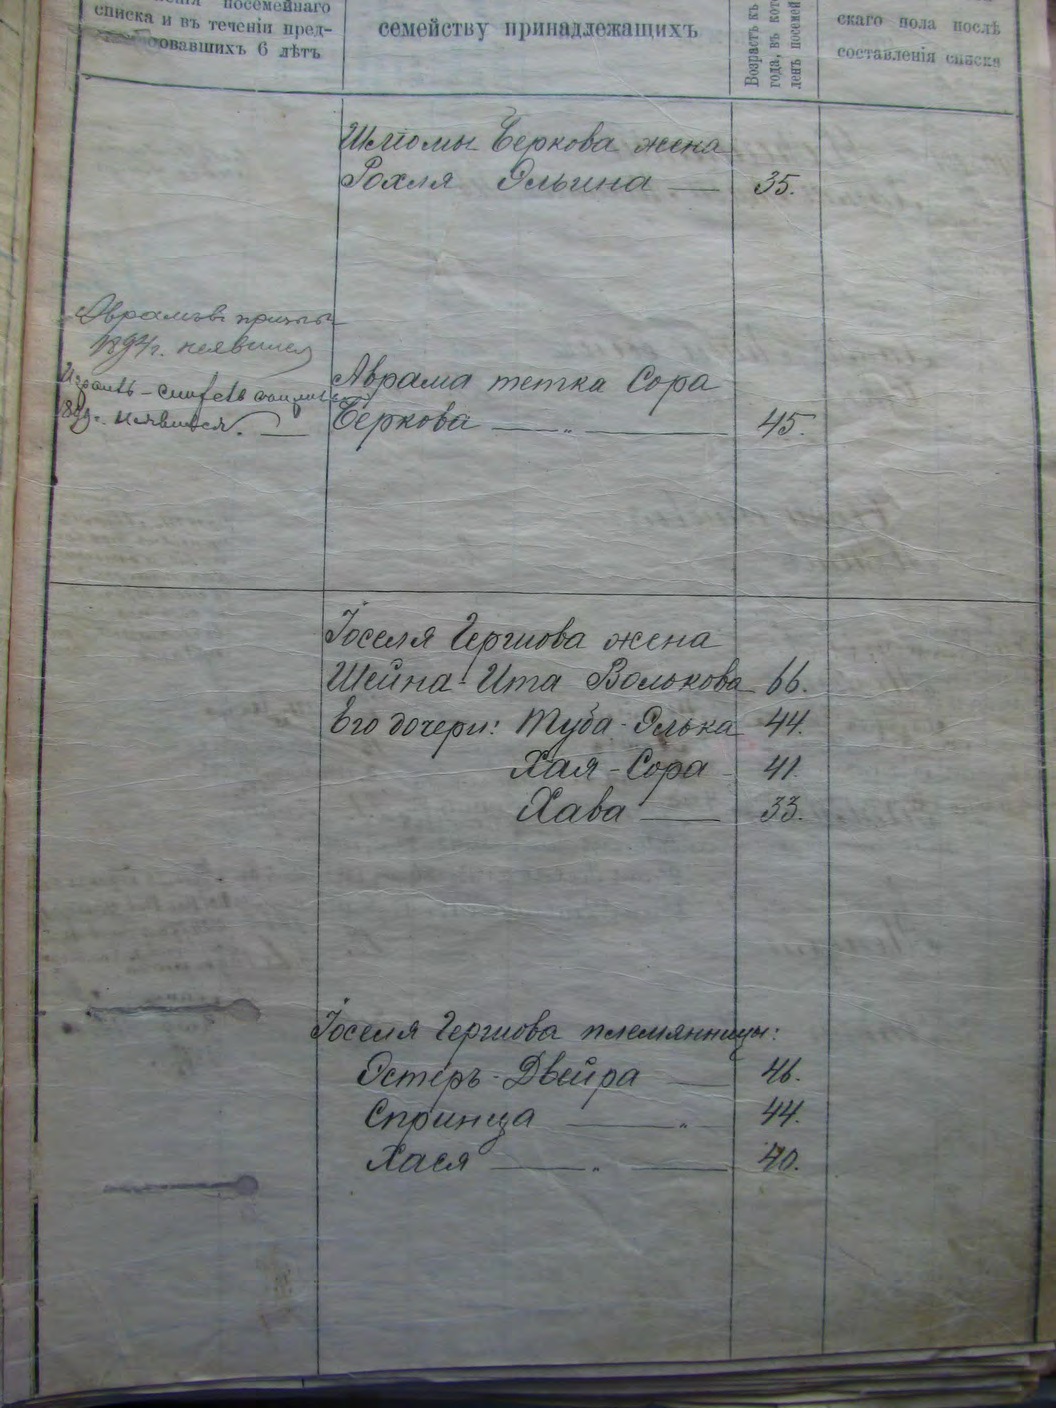 посемейнаго
списка и въ теченіи пред-
овавшихъ 6 лѣтъ
семейству принадлежащихъ
Возрастъ къ
года, въ кот
ленъ посемей
скаго пола послѣ
составленія списка
Шлiомы Беркова жена
Рохля Эльина — 35.
1894г. неявился
неявился. —
Аврама тетка Сора
Беркова — „ — 45.
Іоселя Гершова жена
Шейна-Ита Волькова 66.
Его дочери: Туба-Элька 44.
Хая-Сора 41.
Хава — 33.
Іоселя Гершова племянницы:
Эстеръ-Двейра — 46.
Спринца — „ 44.
Хася — „ — 40.